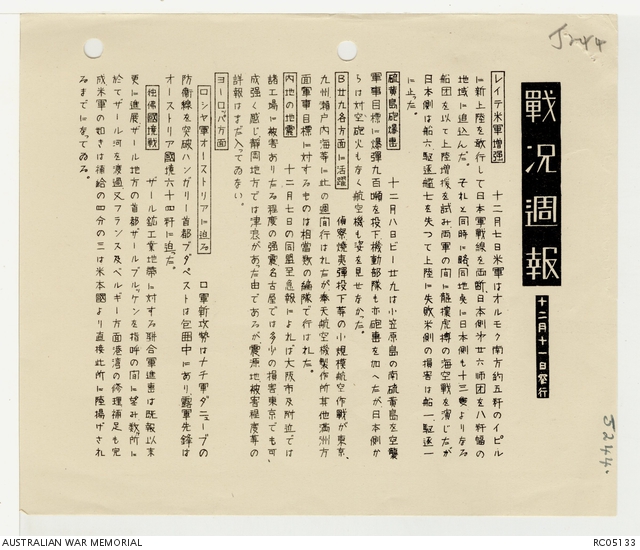 J2144
戰況週報
十二月十一日發行
レイテ米軍増强
十二月七日米軍はオルモク南方約五粁のイピル
に新上陸を敢行して日本軍戰線を両断、日本側第廿六師団を八粁幅の
地域に追込んだ。それと同時に時同地点に日本側も十三隻よりなる
船団を以て上陸増援を試み両軍の間に龍攘虎搏の海空戰を演じたが
日本側は船六駆逐艦七を失つて上陸に失敗米側の損害は船一駆逐一
に止つた。
硫黄島砲爆撃
十二月八日ビー廿九は小笠原島の南硫黄島を空襲
軍事目標に爆彈九百噸を投下機動部隊も亦砲撃を加へたが日本側か
らは対空砲火もなく航空機も姿を見せなかつた。
B廿九各方面に活躍
偵察焼夷彈投下等の小規模航空作戰が東京、
九州瀬戸内海等に此の週間行はれたが奉天航空機製作所其他満州方
面軍事目標に対するものは相當数の編隊で行はれた。
内地の地震
十二月七日の同盟至急報によれば大阪市及附近では
諸工場に被害あり可なる程度の强震名古屋では多少の損害東京でも可
成强く感じ静岡地方では津浪があつた由であるが震源地被害程度等の
詳報はまだ入つてゐない。
ヨーロッパ方面
ロシヤ軍オーストリアに迫る
ロ軍新攻勢はナチ軍ダニューブの
防衛線を突破ハンガリー首都ブダペストは包囲中にあり、露軍先鋒は
オーストリア國境六十四粁に迫つた。
独佛國境戰
ザール鉱工業地帶に対する聯合軍進出は既報以來
更に進展ザール地方の首都ザールブルッケンを指呼の間に望み数ヶ所に
於てザール河を渡過又フランス及ベルギー方面港湾の修理補足も完
成米軍の如きは補給の四分の三は米本國より直接此所に陸揚げされ
るまでになつてゐる。
J2144.
AUSTRALIAN WAR MEMORIAL
RC05133